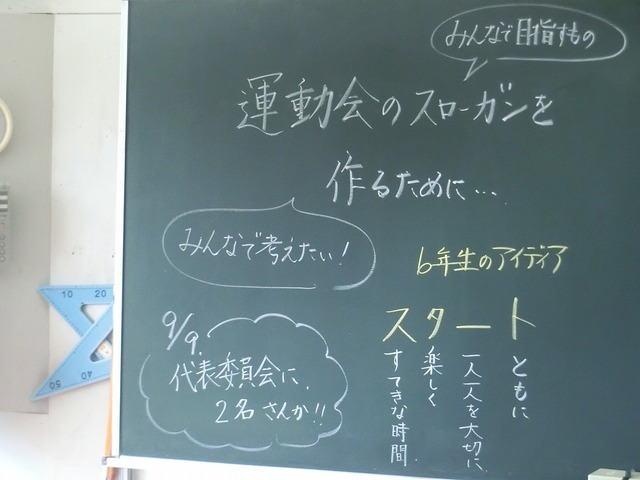 みんなで目指すもの
運動会のスローガンを
作るために…
みんなで考えたい!
6年生のアイディア
スタート
ともに
一人一人を大切に
楽しく
すてきな時間
9/9.
代表委員会に
2名さんか!!
10 20
40
50